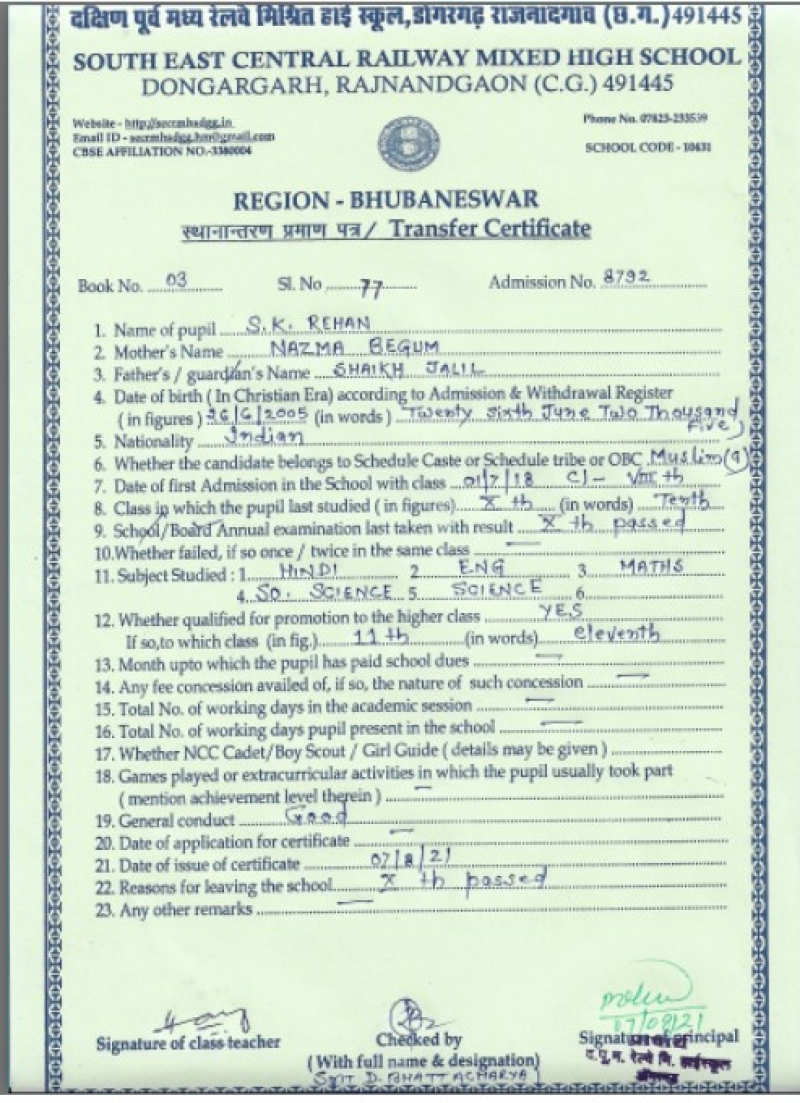 दक्षिण पूर्व मध्य रेलवे मिश्रित हाई स्कूल,डोंगरगढ़ राजनादगाव (छ.ग.)491445
SOUTH EAST CENTRAL RAILWAY MIXED HIGH SCHOOL
DONGARGARH, RAJNANDGAON (C.G.) 491445
Website - http://secrmhsdgg.in Phone No. 07823-233539
Email ID - secrmhsdgg.hm@gmail.com
CBSE AFFILIATION NO.-3380004 SCHOOL CODE - 10431
REGION - BHUBANESWAR
स्थानान्तरण प्रमाण पत्र / Transfer Certificate
Book No. 03 Sl. No 77 Admission No. 8792
1. Name of pupil S.K. REHAN
2. Mother's Name NAZMA BEGUM
3. Father's / guardian's Name SHAIKH JALIL
4. Date of birth ( In Christian Era) according to Admission & Withdrawal Register
( in figures ) 26/6/2005 (in words ) Twenty sixth June Two Thousand Five
5. Nationality Indian
6. Whether the candidate belongs to Schedule Caste or Schedule tribe or OBC Muslim (9)
7. Date of first Admission in the School with class 01/7/18 Cl- VIII th
8. Class in which the pupil last studied ( in figures) X th (in words) Tenth
9. School/Board Annual examination last taken with result X th passed
10.Whether failed, if so once / twice in the same class —
11. Subject Studied : 1. HINDI 2 ENG 3. MATHS
4. SO. SCIENCE 5 SCIENCE 6.
12. Whether qualified for promotion to the higher class YES
If so,to which class (in fig.) 11 th (in words) eleventh
13. Month upto which the pupil has paid school dues —
14. Any fee concession availed of, if so, the nature of such concession —
15. Total No. of working days in the academic session —
16. Total No. of working days pupil present in the school —
17. Whether NCC Cadet/Boy Scout / Girl Guide ( details may be given )
18. Games played or extracurricular activities in which the pupil usually took part
( mention achievement level therein ) —
19. General conduct Good
20. Date of application for certificate —
21. Date of issue of certificate 07/8/21
22. Reasons for leaving the school X th passed
23. Any other remarks —
07/08/21
Signature of class teacher Checked by Signature Principal
प्राचार्य
(With full name & designation) द.पू.म. रेल्वे मि. हाईस्कूल
SMT D. BHATTACHARYA डोंगरगढ़